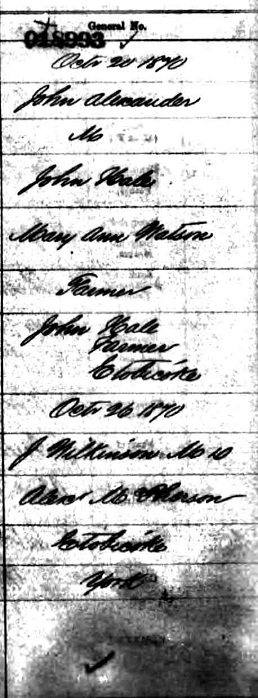 General No.
018993
Octr 20 1870
John Alexander
M
John Hale
Mary Ann Watson
Farmer
John Hale
Farmer
Etobicoke
Octr 26 1870
J Wilkinson M D
Alexr McPherson
Etobicoke
York